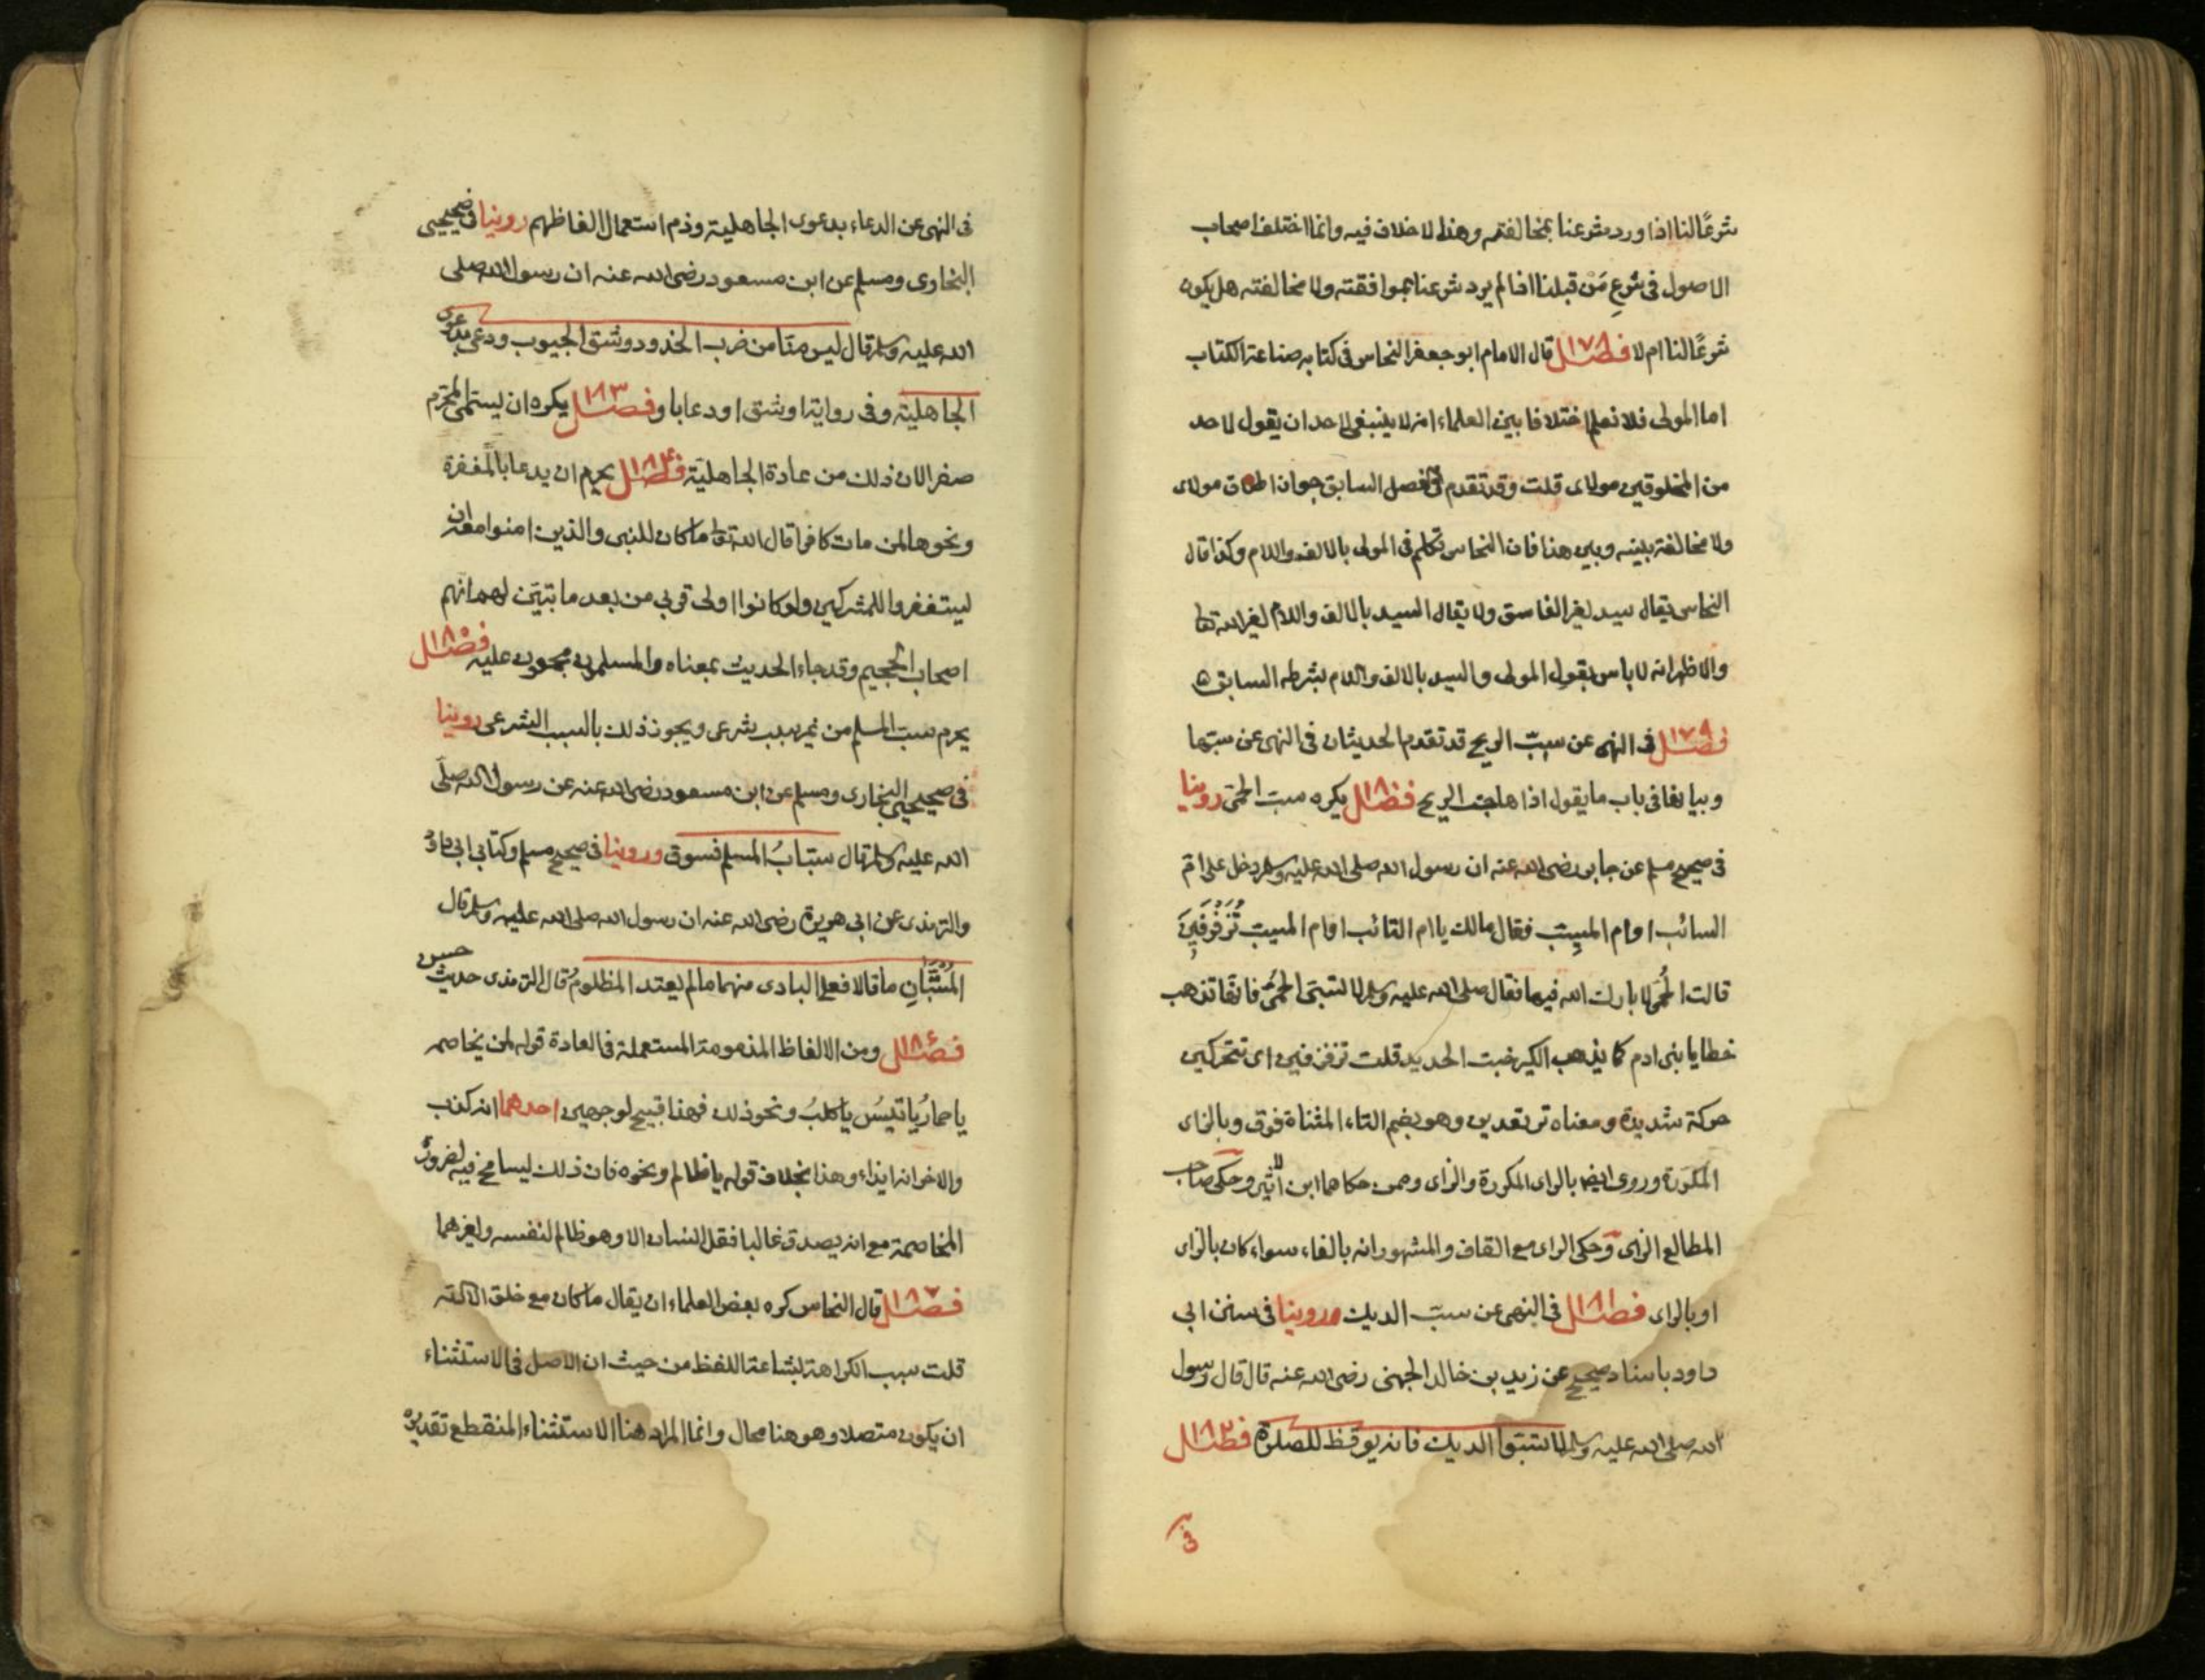 شرعًا لنا اذا ورد شرعنا بمخالفته وهذا لا خلاف فيه وانما اختلف اصحاب
الاصول في شرعِ مَنْ قبلنا اذا لم يرد شرعنا بموافقته ولا مخالفته هل يكون
شرعًا لنا ام لا فصل ١٧٨ قال الامام ابو جعفر النحاس في كتابه صناعة الكتاب
اما المولى فلا نعلم اختلافا بين العلماء انه لا ينبغي لاحد ان يقول لاحد
من المخلوقين مولاى قلت وقد تقدم في الفصل السابق جواز اطلاق مولاى
ولا مخالفة بينه وبين هذا فان النحاس تكلم في المولى بالالف واللام وكذا قال
النحاس يقال سيد لغير الفاسق ولا يقال السيد بالالف واللام لغير الله تعا
والاظهر انه لا باس بقول المولى والسيد بالالف واللام بشرطه السابق ه
فصل ١٧٩ في النهى عن سبّ الريح قد تقدم الحديثان في النهى عن سبّها
وبيانها في باب ما يقول اذا هاجت الريح فصل ١٨٠ يكره سبّ الحمّى روينا
في صحيح مسلم عن جابر رضى الله عنه ان رسول الله صلى الله عليه وسلم دخل على امّ
السائب او ام المسيِّب فقال مالك يا ام السائب او ام المسيب تُزَفْزِفِينَ
قالت الحُمّى لا بارك الله فيها فقال صلى الله عليه وسلم لا تسبّى الحمّى فانها تذهب
خطايا بنى ادم كما يذهب الكير خبث الحديد قلت تزفزفين اى تتحركين
حركة شديدة ومعناه ترتعدين وهو بضم التاء المثناة فوق وبالزاى
المكرّرة وروى ايضا بالراى المكررة والزاى وممن حكاهما ابن الاثير وحكى صاحب
المطالع الزاى وحكى الراى مع القاف والمشهور انه بالفاء سواء كان بالزاى
او بالراى فصل ١٨١ في النهى عن سبّ الديك وروينا في سنن ابي
داود باسناد صحيح عن زيد بن خالد الجهنى رضى الله عنه قال قال رسول
الله صلى الله عليه وسلم لا تسبّوا الديك فانه يوقظ للصلوة فصل ١٨٢
فى
فى النهى عن الدعاء بدعوى الجاهلية وذم استعمال الفاظهم روينا في صحيحى
البخارى ومسلم عن ابن مسعود رضى الله عنه ان رسول الله صلى
الله عليه وسلم قال ليس منّا من ضرب الخدود وشق الجيوب ودعى بدعوى
الجاهليّة وفى رواية او شق او دعا باو فصل ١٨٣ يكره ان يسمّى المحرّم
صفر الان ذلك من عادة الجاهليّة فصل ١٨٤ يحرم ان يدعا بالمغفرة
ونحوها لمن مات كافرا قال الله تعا ما كان للنبى والذين امنوا معه ان
يستغفروا للمشركين ولو كانوا اولى قربي من بعد ما تبيّن لهم انهم
اصحاب الجحيم وقد جاء الحديث بمعناه والمسلمون مجمعون عليه فصل ١٨٥
يحرم سبّ المسلم من غير سبب شرعى ويجوز ذلك بالسبب الشرعى روينا
فى صحيحى البخارى ومسلم عن ابن مسعود رضى الله عنه عن رسول الله صلّى
الله عليه وسلم قال سبابُ المسلم فسوق وروينا فى صحيح مسلم وكتابي ابي داود
والترمذى عن ابي هريرة رضى الله عنه ان رسول الله صلى الله عليه وسلم قال
المُسْتَبَّانِ ما قالا فعلى البادى منهما ما لم يعتد المظلومُ قال الترمذى حديث حسن
فصل ١٨٦ ومن الالفاظ المذمومة المستعملة فى العادة قوله لمن يخاصمه
يا حمارُ يا تيسُ يا كلبُ ونحو ذلك فهذا قبيح لوجهين احدهما انه كذب
والاخر انه ايذاء وهذا بخلاف قوله يا ظالم ونحوه فان ذلك يسامح فيه لضرورة
المخاصمة مع انه يصدق غالبا فقل انسان الا وهو ظالم لنفسه ولغيرهما
فصل ١٨٧ قال النحاس كره بعض العلماء ان يقال ما كان مع خلق الا الله
قلت سبب الكراهة بشاعة اللفظ من حيث ان الاصل فى الاستثناء
ان يكون متصلا وهو هنا محال وانما المراد هنا الاستثناء المنقطع تقديره